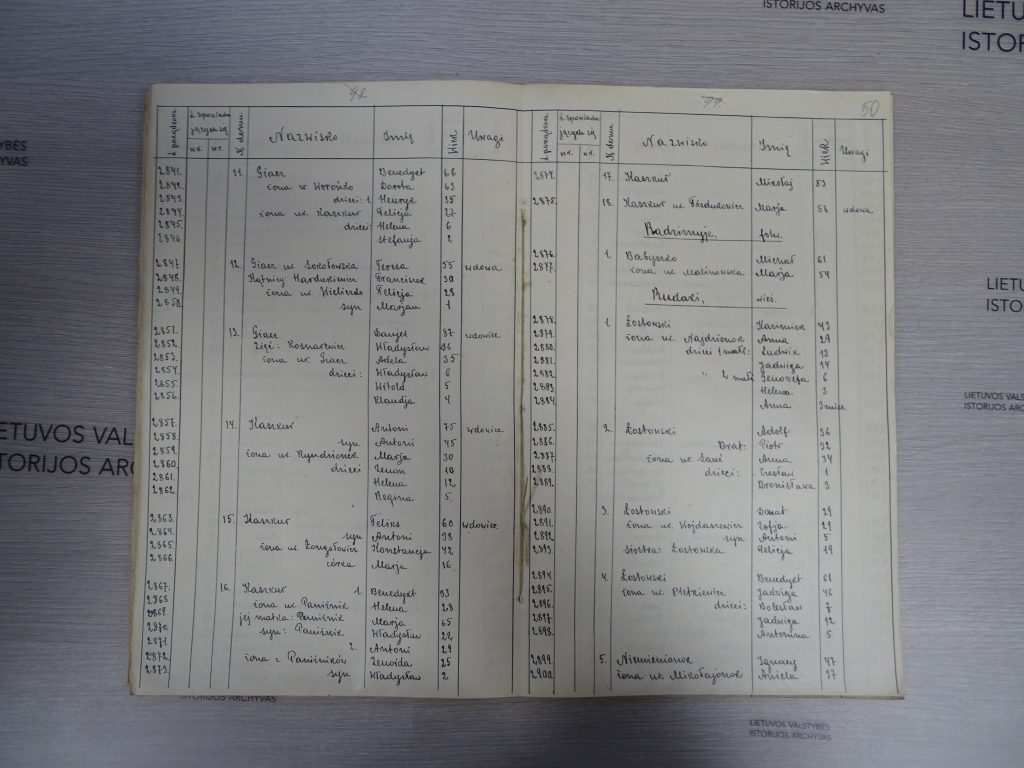 ISTORIJOS ARCHYVAS
LIETU
ISTOR
LIETUVOS VALS
ISTORIJOS ARCHYVAS
LIETUVOS VALSTYBĖS
ISTORIJOS ARCHYVAS
ETUVOS VAL
STORIJOS ARCH
42
L. porządkow.
L. spowiada-
jących się
№ domu
Nazwisko
Imię
Wiek
Uwagi
2841. 11. Giacz Benedykt 66
2842. żona ur. Dorota 63
2843. dzieci: 1. Henryk 35
2844. żona ur. Kaszkur Felicja 27
2845. dzieci: Helena 6
2846. Stefanja 2
2847. 12. Giacz ur. Sokołowska Teresa 55 wdowa
2848. Franciszek 30
2849. żona ur. Felicja 28
2850. syn Marjan 1
2851. 13. Giacz Danjel 87 wdowiec
2852. Władysław 36
2853. żona ur. Giacz Adela 35
2854. dzieci: Władysław 6
2855. Witold 5
2856. Klaudja 4
2857. 14. Kaszkur Antoni 75 wdowiec
2858. syn Antoni 45
2859. żona ur. Marja 30
2860. dzieci Zenon 10
2861. Helena 12
2862. Regina 5.
2863. 15. Kaszkur Feliks 60 wdowiec
2864. syn Antoni 38
2865. żona ur. Konstancja 42
2866. córka Marja 16
2867. 16. Kaszkur 1. Benedykt 33
2868. żona ur. Helena 28
2869. jej matka: Marja 65
2870. syn: Władysław 22
2871. 2. Antoni 29
2872. żona z Zenoida 25
2873. syn Władysław 2.
50
L. porządkow.
L. spowiada-
jących się
№ domu
Nazwisko
Imię
Wiek
Uwagi
2874. 17. Kaszkur Mikołaj 53
2875. 18. Kaszkur ur. Marja 56 wdowa
folw.
2876. 1. Babyszko Michał 61
2877. żona ur. Malinowska Marja 54
Rudaki, wieś.
2878. 1. Łostowski Kazimierz 43
2879. żona ur. Najdzionok Anna 29
2880. dzieci Ludwik 13
2881. Jadwiga 14
2882. Genowefa 6
2883. Helena 3
2884. Anna 3 mies.
2885. 2. Łostowski Adolf 36
2886. Brat: Piotr 32
2887. żona ur. Anna 34
2888. dzieci: Czesław 1
2889. Bronisława 3
2890. 3. Łostowski Donat 29
2891. żona ur. Zofja 29
2892. syn Antoni 5
2893. siostra: Łostowska Felicja 19
2894. 4. Łostowski Benedykt 61
2895. żona ur. Pietkiewicz Jadwiga 46
2896. dzieci: Bolesław 7
2897. Jadwiga 12
2898. Antonina 5
2899. 5. Niemienionok Ignacy 47
2900. żona ur. Mikołajonok Aniela 37
LIETUVOS VALSTYBĖS
ISTORIJOS ARCHYVAS